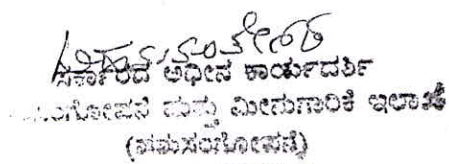 ಸರ್ಕಾರದ ಅಧೀನ ಕಾರ್ಯದರ್ಶಿ
ಮತ್ತು ಮೀನುಗಾರಿಕೆ ಇಲಾಖೆ
(ಪಶುಸಂಗೋಪನೆ)